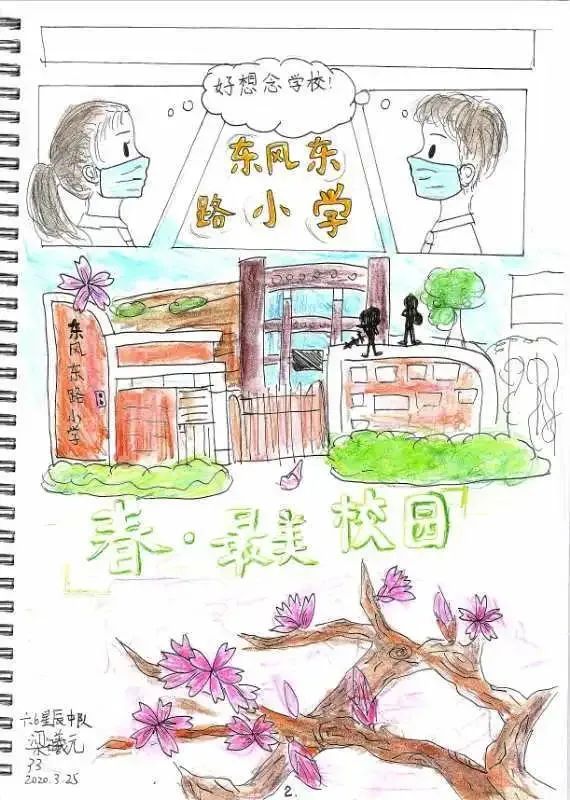 好想念学校!
东风东
路小学
东风东路小学
春·最美校园
六6星辰中队
梁曦元
33
2020.3.25
2.